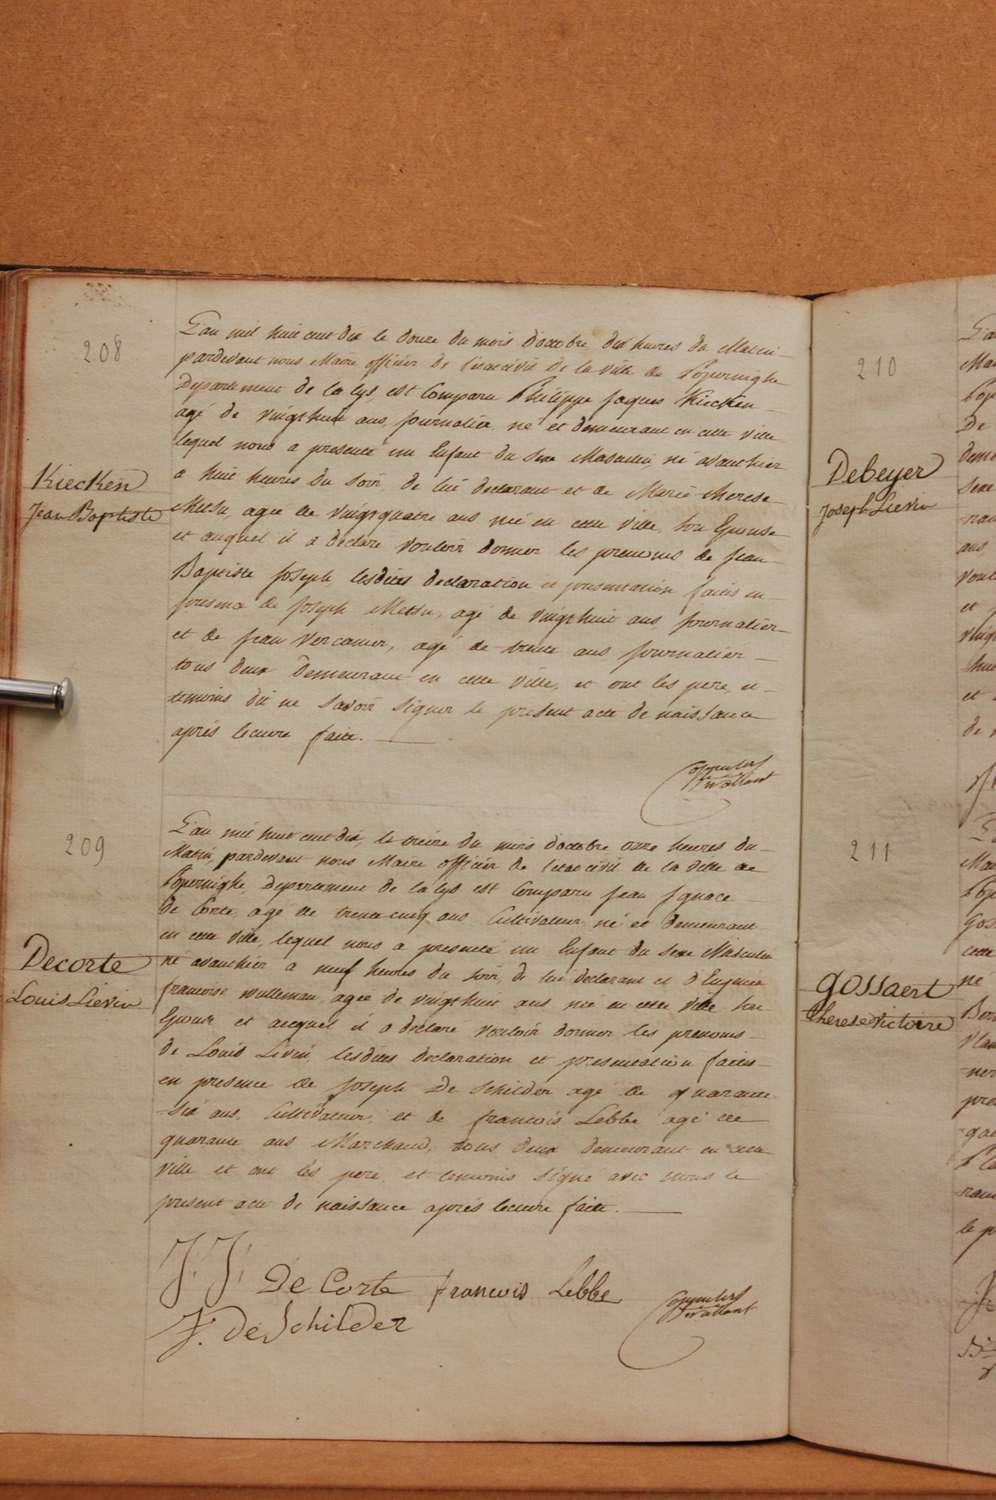 208
Kiecken
Jean Baptiste
L'an mil huit cent dix le douze du mois d'octobre, dix heures du Matin
pardevant nous Maire officier de l'etat civil de la ville de Poperinghe
departement de la lys, est Comparu Philippe Jaques Kiecken
agé de vingthuit ans, journalier né et demeurant en cette ville
lequel nous a presenté un Enfant du sexe Masculin, né avanthier
a huit heures du soir, de lui declarant et de Marie therese
Metsu, agée de vingtquatre ans née en cette ville, son Epouse
et auquel il a declaré vouloir donner les prenoms de Jean
Baptiste Joseph lesdites declaration et presentation faites en
presence de Joseph Metsu, agé de vingthuit ans journalier
et de Jean Vercamer, agé de trente ans journalier
tous deux demeurant en cette ville, et ont les pere, et
temoins dit ne savoir signer le present acte de naissance
après lecture faite.
209
Decorte
Louis Lievin
L'an mil huit cent dix, le treize du mois d'octobre onze heures du
Matin, pardevant nous Maire officier de l'etat civil de la ville de
Poperinghe, departement de la lys est Comparu Jean Ignace
De Corte, agé de trente cinq ans Cultivateur né et demeurant
en cette ville, lequel nous a presenté un Enfant du sexe Masculin
né avanthier a neuf heures du soir, de lui declarant et d'Eugenie
francoise Wulleman, agée de vingthuit ans née en cette ville son
Epouse et auquel il a declaré vouloir donner les prenoms
de Louis Livin lesdites declaration et presentation faites
en presence de Joseph De Schilder agé de quarante
-six ans, Cultivateur, et de francois Lebbe agé de
quarante ans Marchand, tous deux demeurant en cette
ville et ont les pere, et temoins signé avec nous le
present acte de naissance après lecture faite.
J. J. De Corte francois Lebbe
J. De Schilder
210
Debeyer
Joseph Lievin
211
Gossaert
therese victoire